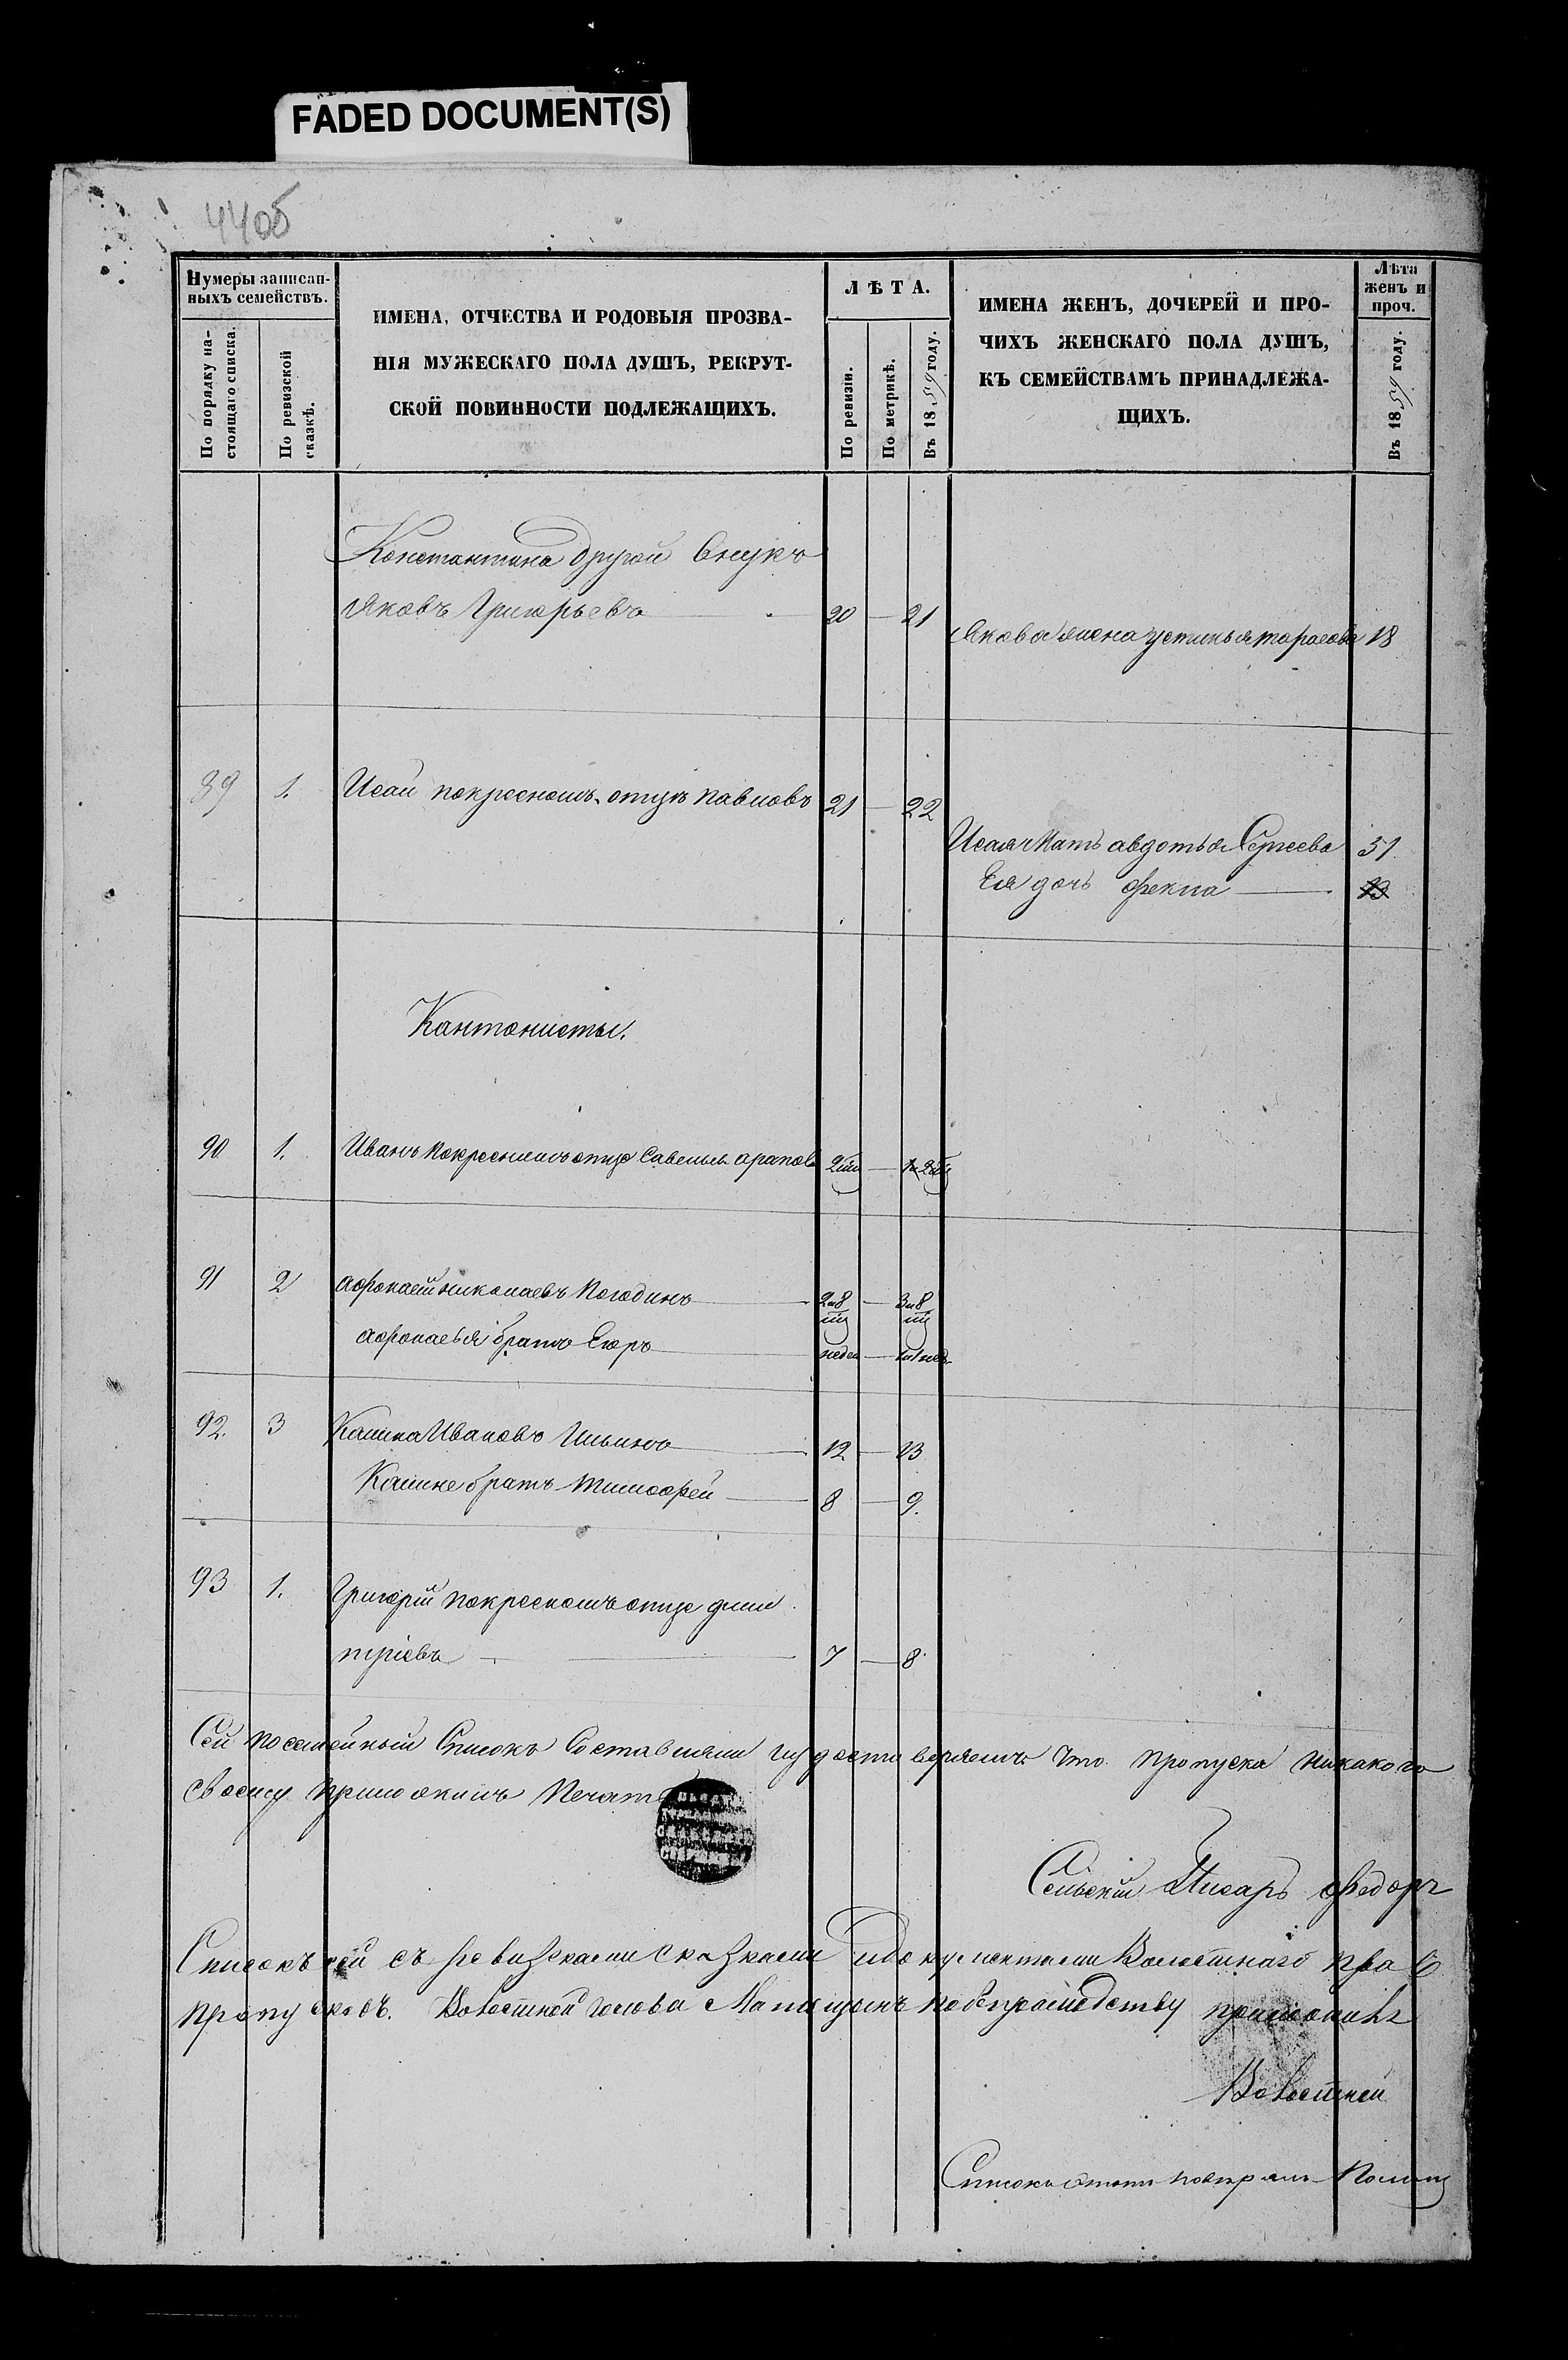 FADED DOCUMENT(S)
44об
Нумеры записан-
ныхъ семействъ.
По порядку на-
стоящаго списка.
По ревизской
сказкѣ.
ИМЕНА, ОТЧЕСТВА И РОДОВЫЯ ПРОЗВА-
НІЯ МУЖЕСКАГО ПОЛА ДУШЪ, РЕКРУТ-
СКОЙ ПОВИННОСТИ ПОДЛЕЖАЩИХЪ.
ЛѢТА.
По ревизіи.
По метрикѣ.
Въ 1859 году.
ИМЕНА ЖЕНЪ, ДОЧЕРЕЙ И ПРО-
ЧИХЪ ЖЕНСКАГО ПОЛА ДУШЪ,
КЪ СЕМЕЙСТВАМЪ ПРИНАДЛЕЖА-
ЩИХЪ.
Лѣта
женъ и
проч.
Въ 1859 году.
Константина другой внукъ
Яковъ Григорьевъ — 20 — 21
Якова жена устинья тарасова 18
89 1. Исай покресномъ отцѣ павловъ 21 — 22
Исая Мать авдотья Сергеева 51
Ея дочь фекла —
Кантонисты.
90 1. Иванъ покресномъ отцѣ Савельев арапов
91 2 афонасій николаевъ Погодинъ — 2 и 8 — 3 и 8
афонасья братъ Егоръ — недел —
92. 3 Калина Ивановъ Ильинъ — 12 — 13
Калине братъ тимофей — 8 — 9.
93 1. Григорій покресномъ отцѣ дми
тріевъ — 7 — 8
Сей посемейный Списокъ Составляли и удостоверяемъ что пропуска никакого
своему приложилъ Печать
Сельскій Писарь федоръ
Списокъ сей съ ревизскими сказками и документами Волостнаго прав
пропусковъ. Волостной голова приложилъ
Волостной
Списокъ